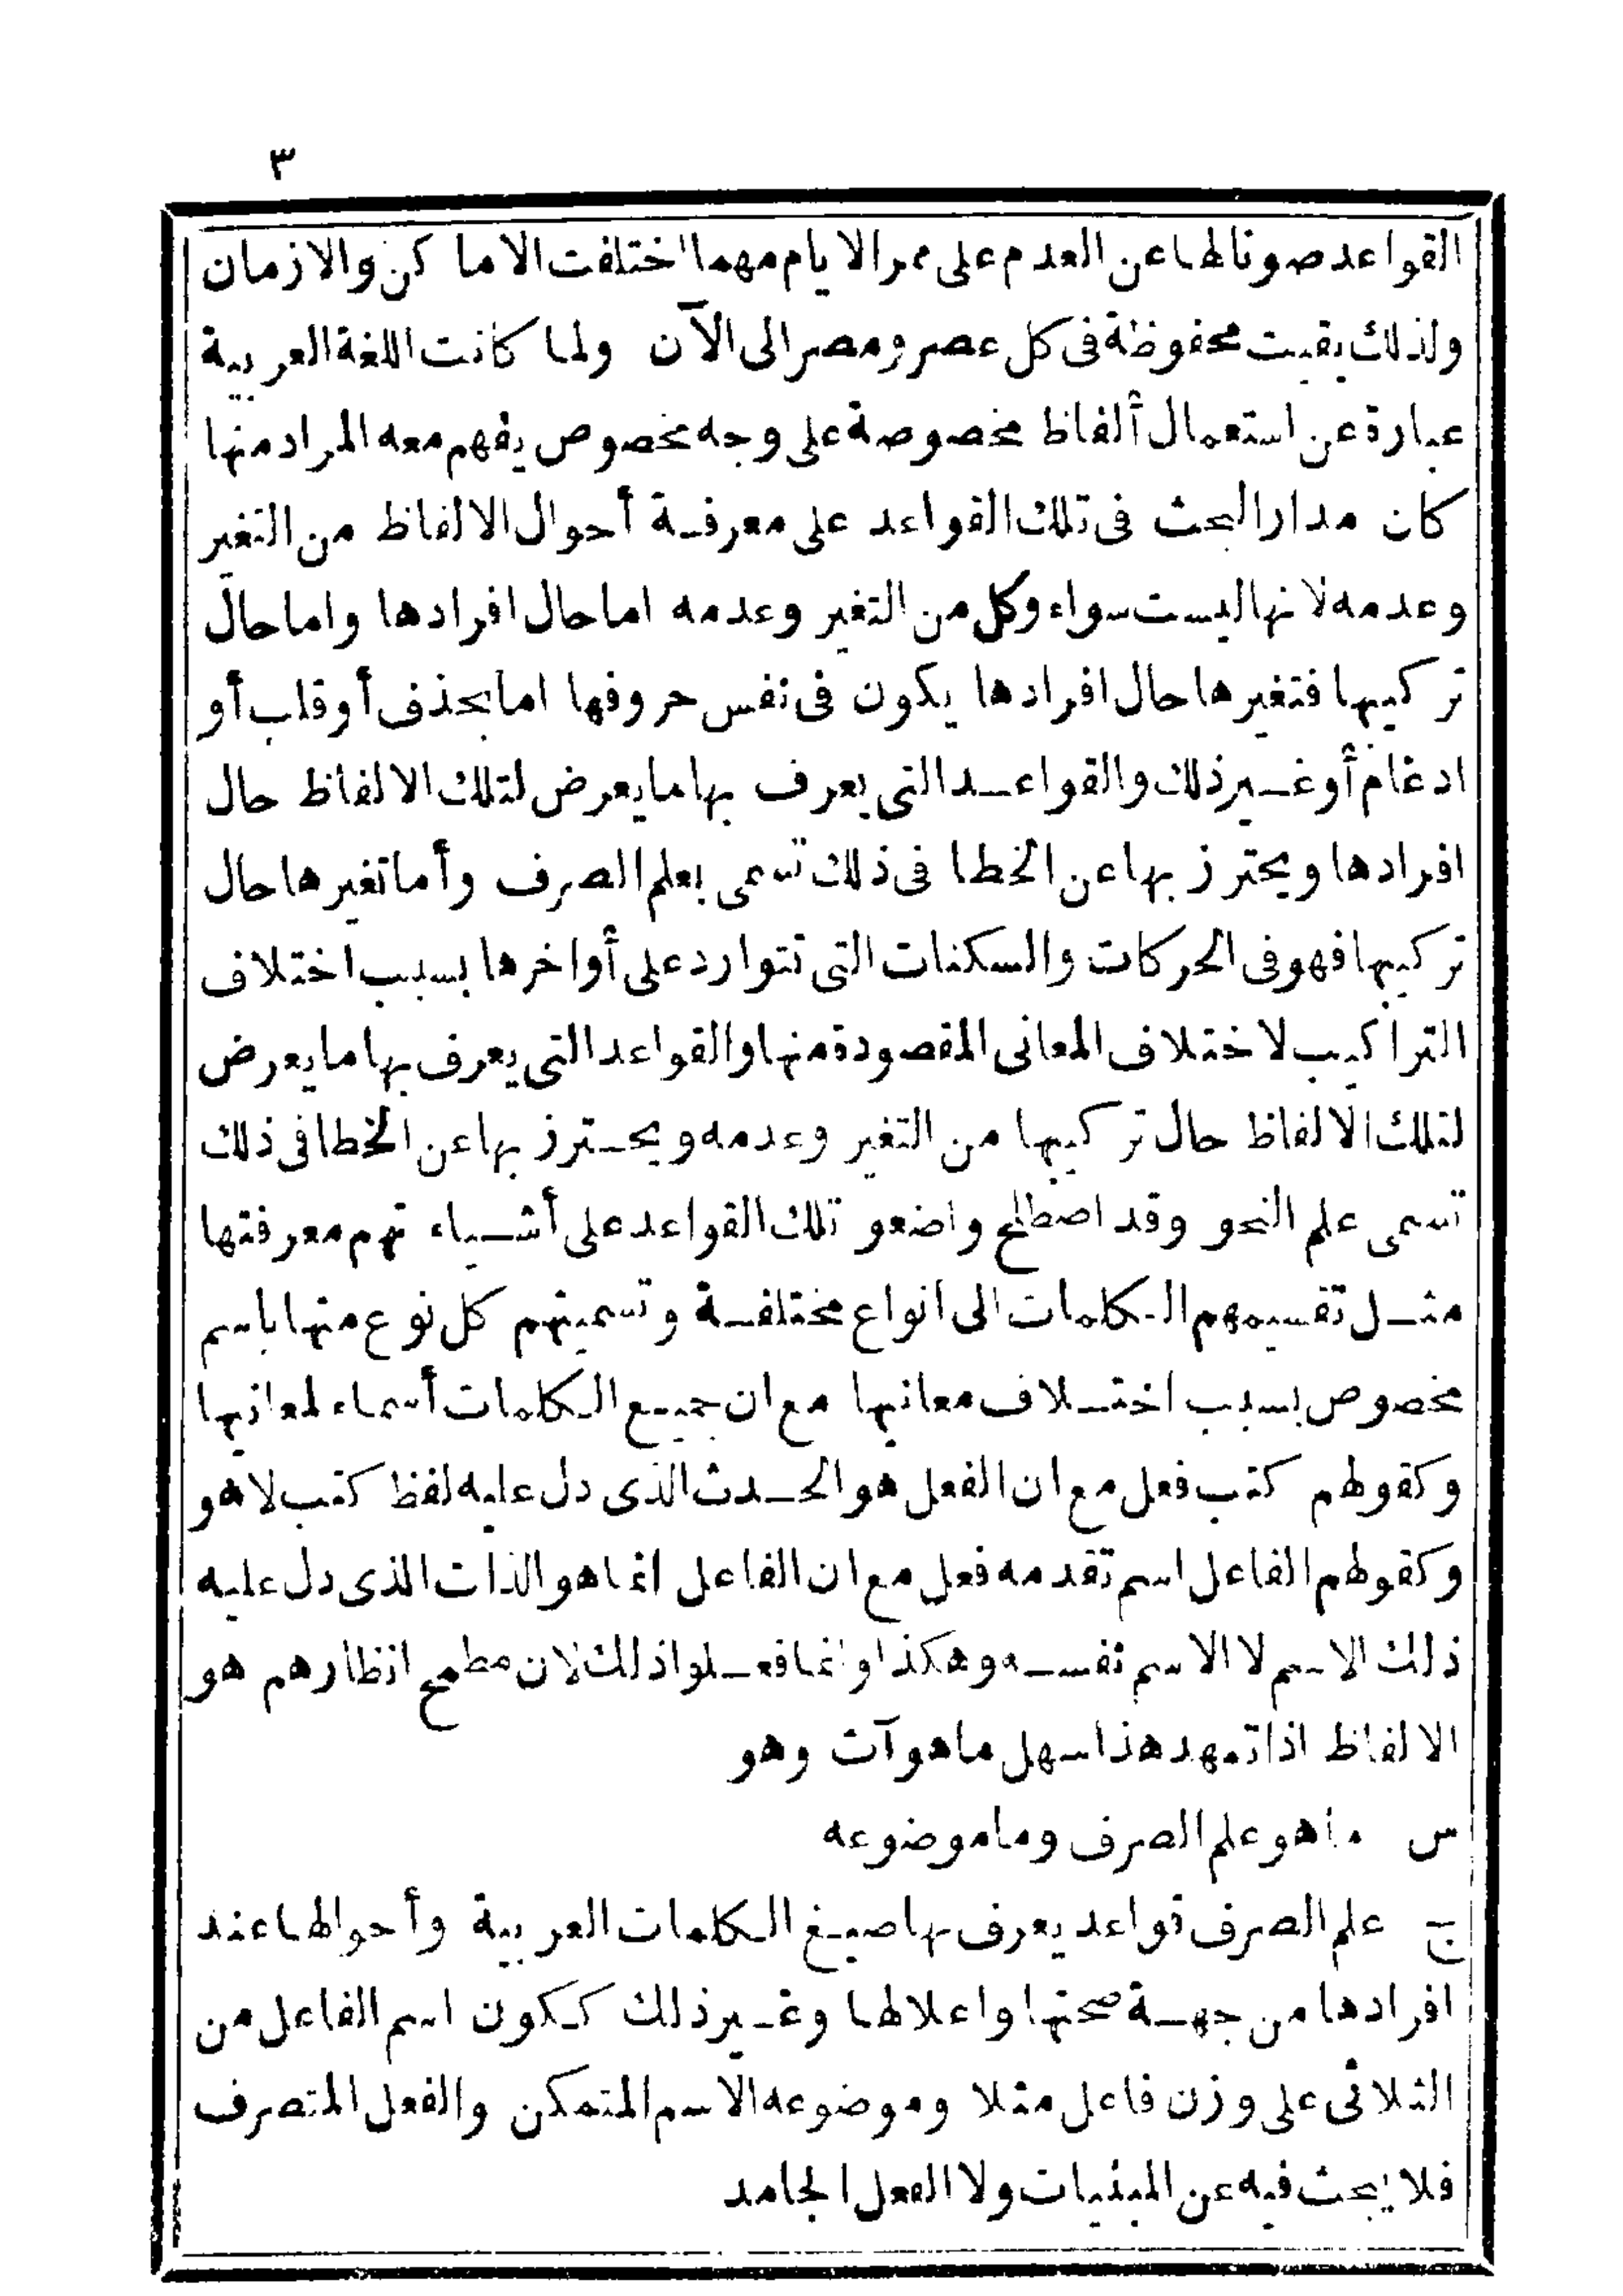 ٣
القواعد صونا لها عن العدم على ممر الايام مهما اختلفت الاماكن والازمان
ولذلك بقيت محفوظة فى كل عصر ومصر الى الآن ولما كانت اللغة العربية
عبارة عن استعمال ألفاظ مخصوصة على وجه مخصوص يفهم معه المراد منها
كان مدار البحث فى تلك القواعد على معرفة أحوال الالفاظ من التغير
وعدمه لانها ليست سواء وكل من التغير وعدمه اما حال افرادها واما حال
تركيبها فتغيرها حال افرادها يكون فى نفس حروفها اما بحذف أو قلب أو
ادغام أو غير ذلك والقواعد التى يعرف بها ما يعرض لتلك الالفاظ حال
افرادها ويحترز بها عن الخطا فى ذلك تسمى بعلم الصرف وأما تغيرها حال
تركيبها فهو فى الحركات والسكنات التى تتوارد على أواخرها بسبب اختلاف
التراكيب لاختلاف المعانى المقصودة منها والقواعد التى يعرف بها ما يعرض
لتلك الالفاظ حال تركيبها من التغير وعدمه ويحترز بها عن الخطا فى ذلك
تسمى علم النحو وقد اصطلح واضعو تلك القواعد على أشياء تهم معرفتها
مثل تقسيمهم الكلمات الى انواع مختلفة وتسميتهم كل نوع منها باسم
مخصوص بسبب اختلاف معانيها مع ان جميع الكلمات أسماء لمعانيها
وكقولهم كتب فعل مع ان الفعل هو الحدث الذى دل عليه لفظ كتب لا هو
وكقولهم الفاعل اسم تقدمه فعل مع ان الفاعل انما هو الذات الذى دل عليه
ذلك الاسم لا الاسم نفسه وهكذا وانما فعلوا ذلك لان مطمح انظارهم هو
الالفاظ اذا تمهد هذا سهل ما هو آت وهو
س ما هو علم الصرف وما موضوعه
ج علم الصرف قواعد يعرف بها صيغ الكلمات العربية وأحوالها عند
افرادها من جهة صحتها واعلالها وغير ذلك ككون اسم الفاعل من
الثلاثى على وزن فاعل مثلا وموضوعه الاسم المتمكن والفعل المتصرف
فلا يبحث فيه عن المبنيات ولا الفعل الجامد